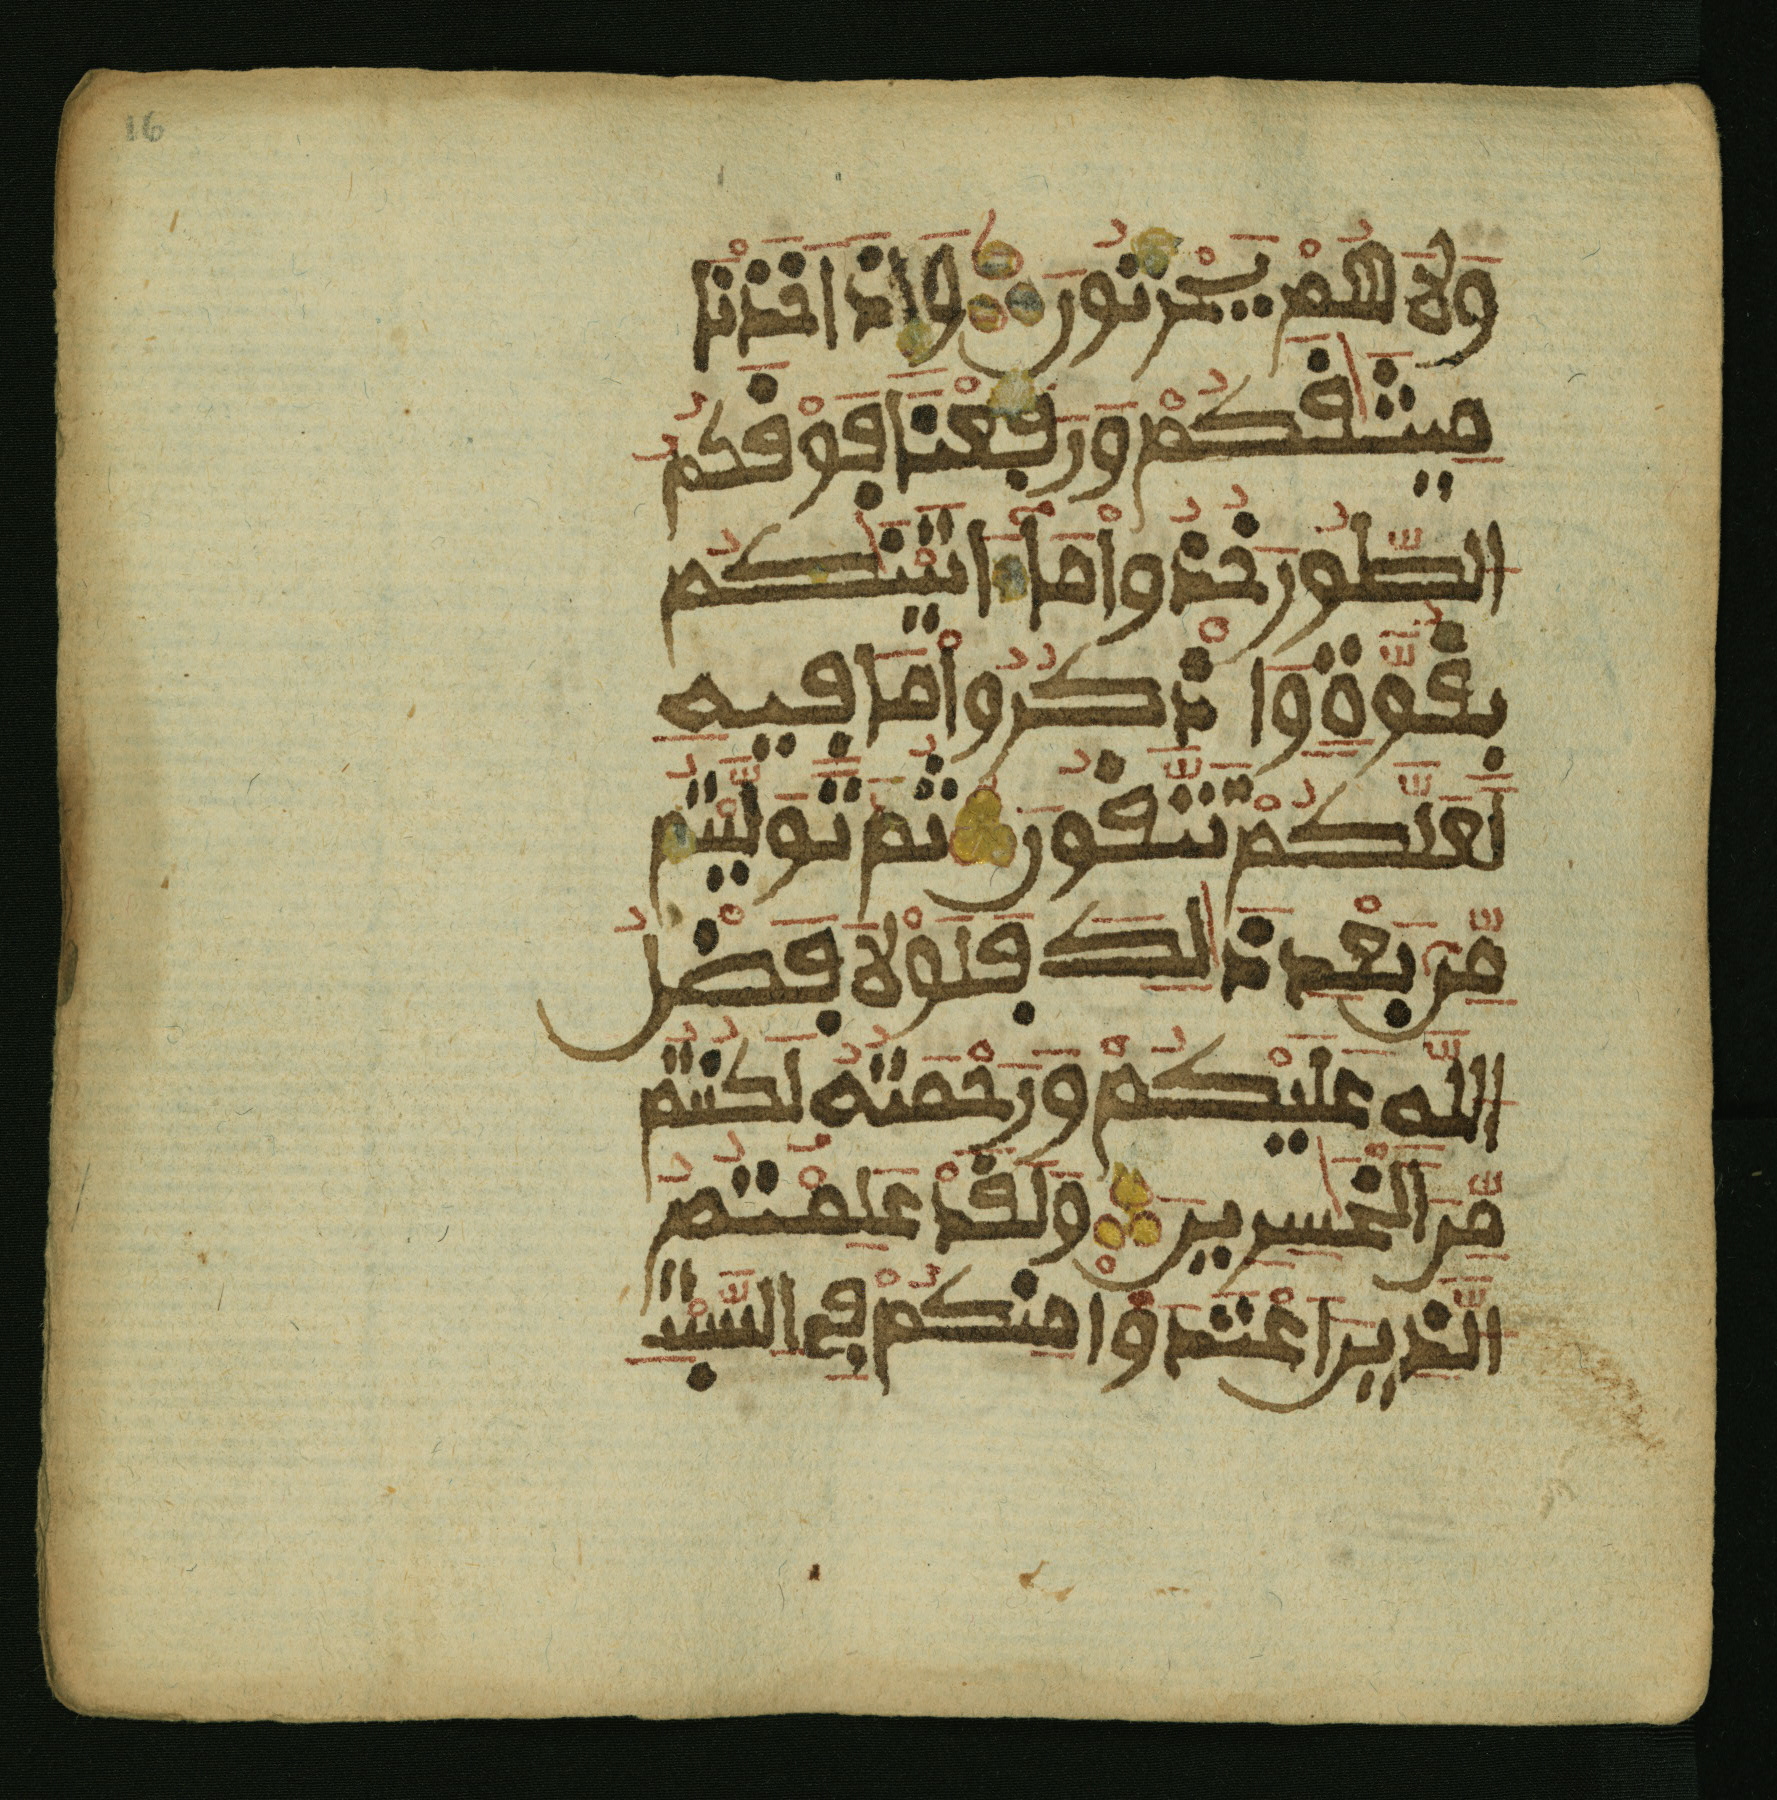 16
وَلَا هُمْ يَحْزَنُونَ وَإِذْ أَخَذْنَا
مِيثَٰقَكُمْ وَرَفَعْنَا فَوْقَكُمُ
الطُّورَ خُذُوا مَا ءَاتَيْنَٰكُم
بِقُوَّةٍ وَاذْكُرُوا مَا فِيهِ
لَعَلَّكُمْ تَتَّقُونَ ثُمَّ تَوَلَّيْتُم
مِّنۢ بَعْدِ ذَٰلِكَ فَلَوْلَا فَضْلُ
اللَّهِ عَلَيْكُمْ وَرَحْمَتُهُ لَكُنتُم
مِّنَ الْخَٰسِرِينَ وَلَقَدْ عَلِمْتُمُ
الَّذِينَ اعْتَدَوْا مِنكُمْ فِي السَّبْتِ